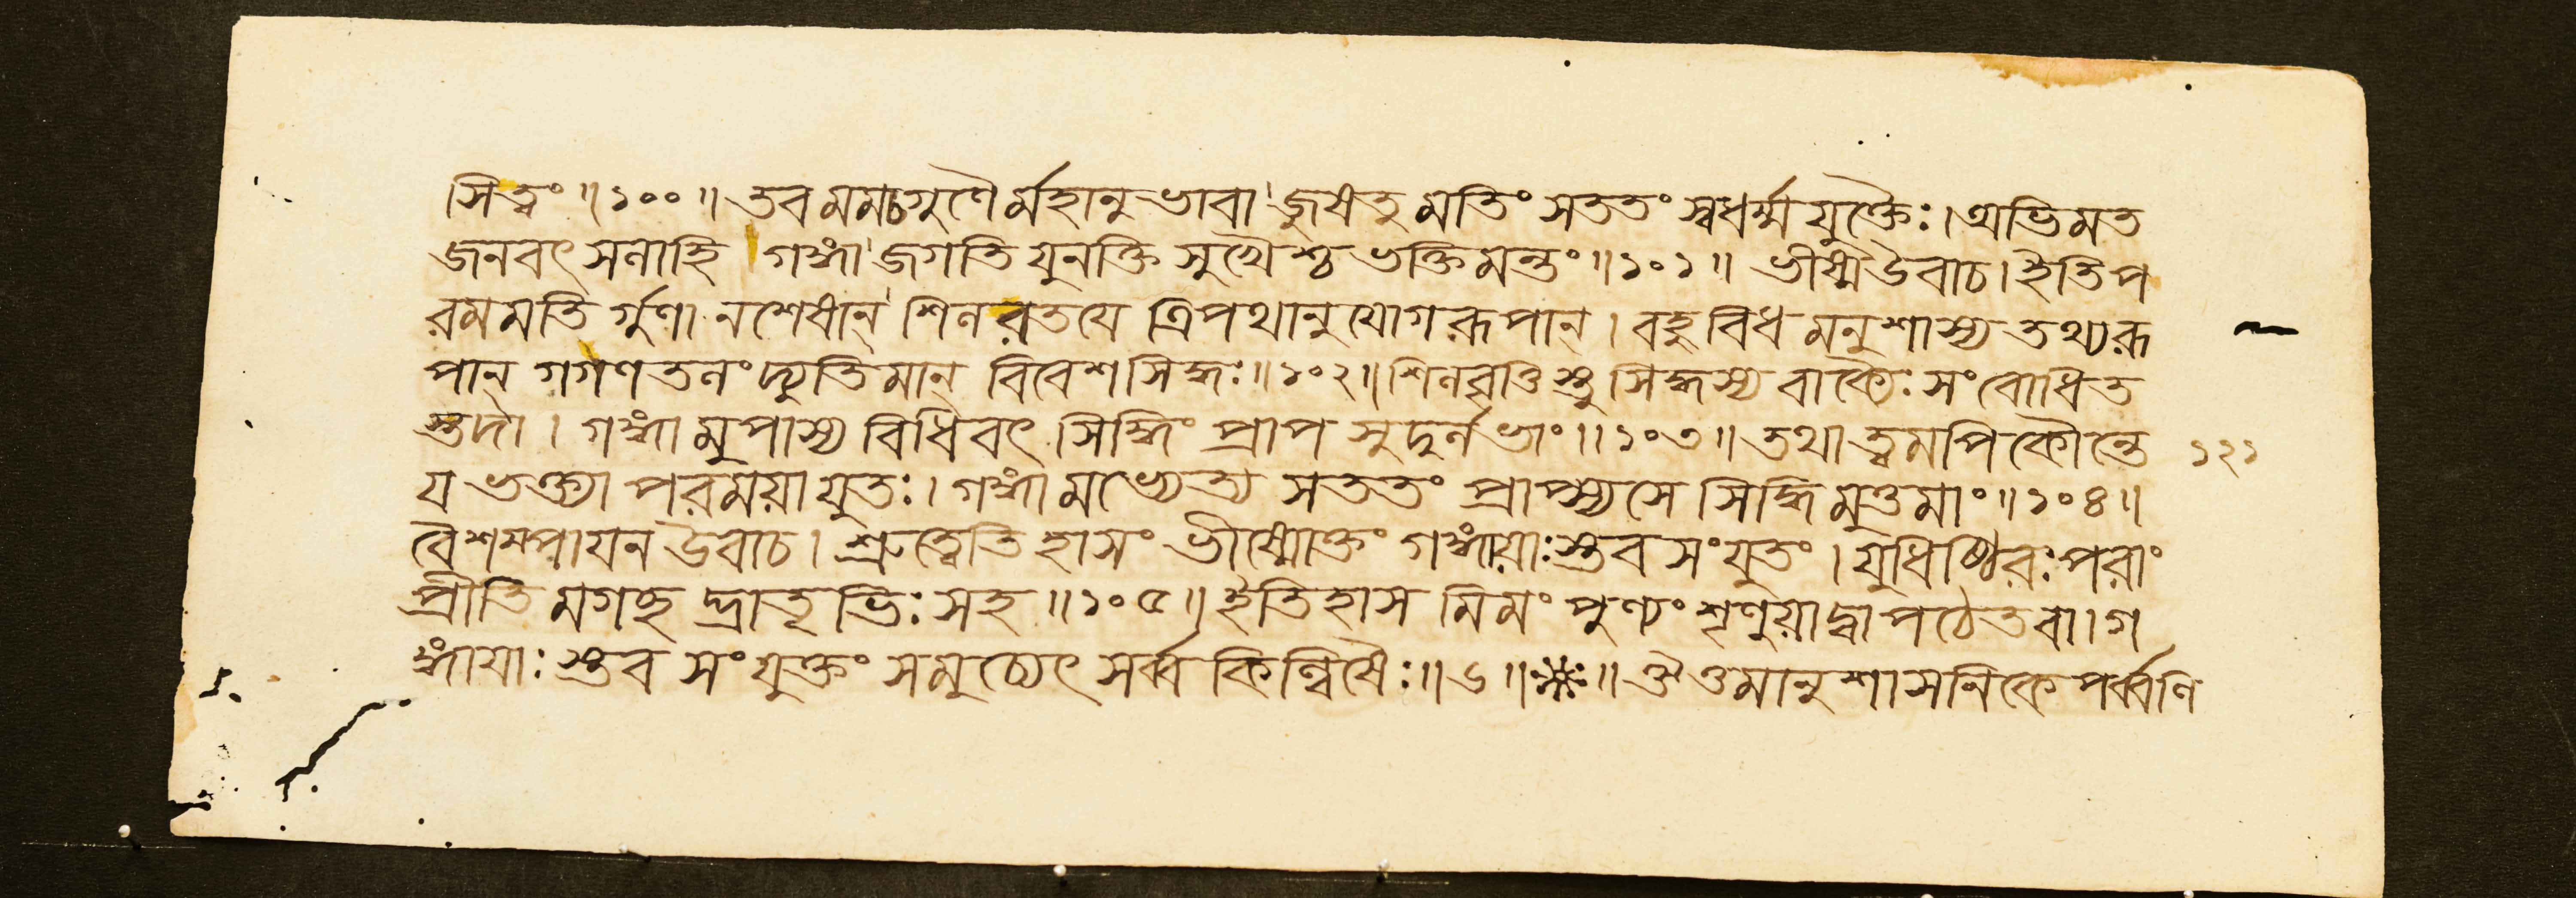 সিত্বং॥১০০॥তব মমচ গুণৈর্ম্মহানুভাবা জুষতু মতিং সততং স্বধর্ম্ম যুক্তৈঃ।অভিমত
জনবৎসলাহি গঙ্গা জগতি যুনক্তি সুখৈশ্চ ভক্তিমন্তং॥১০১॥ ভীষ্মউবাচ।ইতিপ
রমমতি র্গুণা নশেষান্ শিলরতযে ত্রিপথানুযোগরূপান্।বহুবিধ মনুশাস্য তথ্যরূ
পান্ গগণতলং দ্যুতিমান্ বিবেশসিদ্ধঃ॥১০২॥শিলবৃত্তিস্তু সিদ্ধস্য বাক্যৈঃসংবোধিত
স্তদা।গঙ্গামুপাস্য বিধিবৎ সিদ্ধিং প্রাপ সুদুর্লভাং॥১০৩॥তথা ত্বমপি কৌন্তে ১২১
য ভক্ত্যা পরময়া যুতঃ।গঙ্গামভ্যেত্য সততং প্রাপ্স্যসে সিদ্ধি মুত্তমাং॥১০৪॥
বৈশম্পাযন উবাচ। শ্রুত্বেতি হাসং ভীষ্মোক্তং গঙ্গায়াঃস্তব সংযুতং।যুধিষ্ঠিরঃ পরাং
প্রীতি মগচ্ছ দ্ভ্রাতৃভিঃসহ॥১০৫॥ইতিহাস মিমং পুণ্যং শৃণুয়াদ্বাপঠেতবা।গ
ঙ্গাযাঃ স্তব সংযুক্তং সমুচ্যেৎ সর্ব্ব কিল্বিষৈঃ॥৬॥※॥ঔত্তমানুশাসনিকে পর্ব্বণি